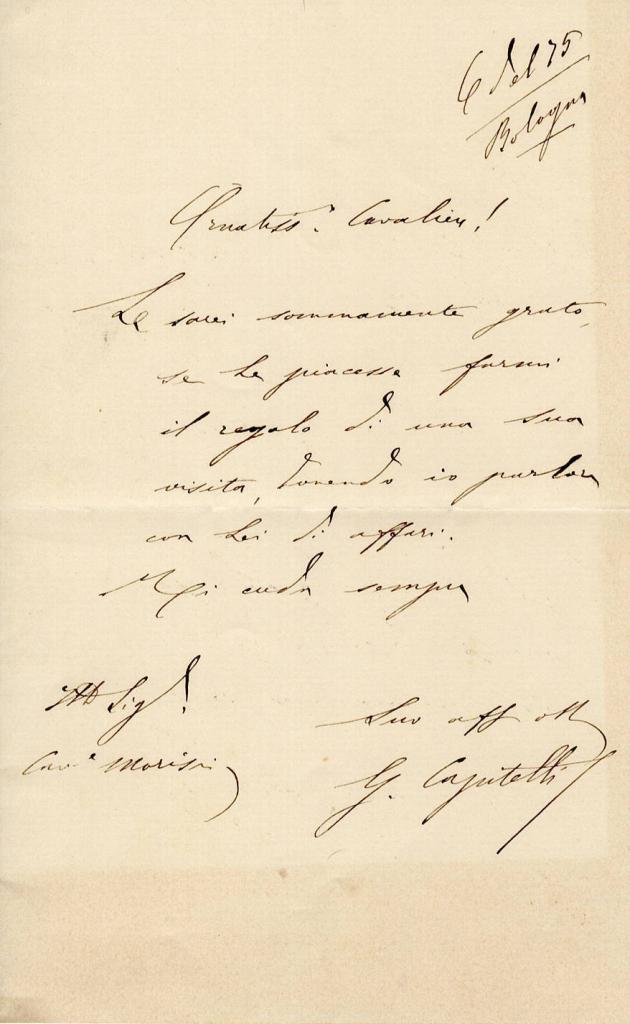 6 del 75
Bologna
Ornatiss.º Cavaliere!
Le sarei sommamente grato,
se Le piacesse farmi
il regalo di una sua
visita, dovendo io parlare
con Lei di affari.
Mi creda sempre
Suo aff
Sig
Cav.e Morisi
G.